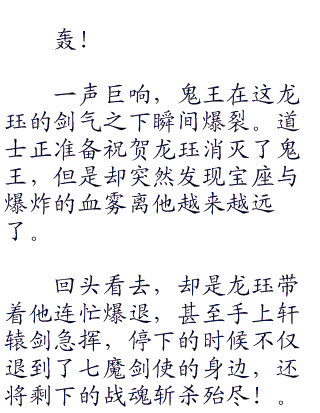 轰！
一声巨响，鬼王在这龙
珏的剑气之下瞬间爆裂。道
士正准备祝贺龙珏消灭了鬼
王，但是却突然发现宝座与
爆炸的血雾离他越来越远
了。
回头看去，却是龙珏带
着他连忙爆退，甚至手上轩
辕剑急挥，停下的时候不仅
退到了七魔剑使的身边，还
将剩下的战魂斩杀殆尽！。